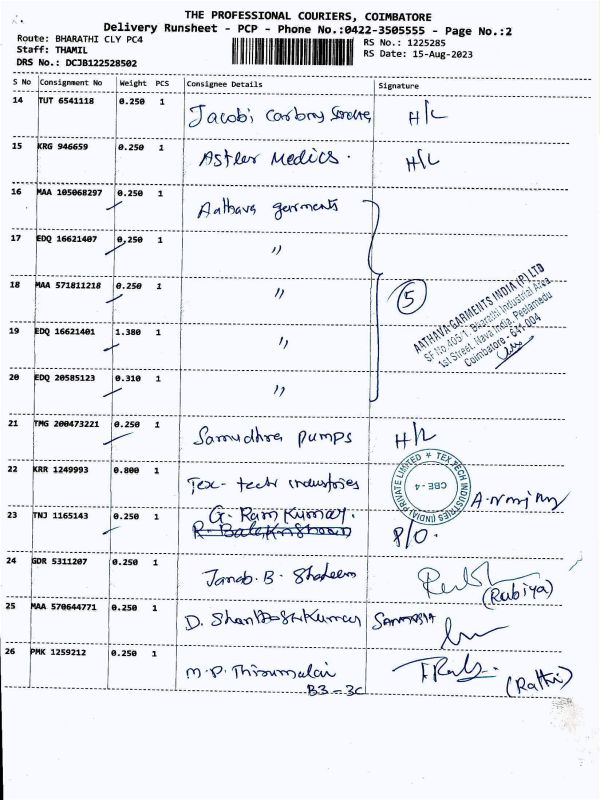 THE PROFESSIONAL COURIERS, COIMBATORE
Delivery Runsheet - PCP - Phone No.:0422-3505555 - Page No.:2
Route: BHARATHI CLY PC4
Staff: THAMIL
DRS No.: DCJB122528502
RS No.: 1225285
RS Date: 15-Aug-2023
S No Consignment No Weight PCS Consignee Details Signature
14 TUT 6541118 0.250 1 Jacobi Carbons H/L
15 KRG 946659 0.250 1 Aster Medics. H/L
16 MAA 105068297 0.250 1 Aathava garments
17 EDQ 16621407 0.250 1 "
18 MAA 571811218 0.250 1 "
19 EDQ 16621401 1.380 1 "
20 EDQ 20585123 0.310 1 "
5
AATHAVA GARMENTS INDIA (P) LTD
SF No.405/1, Bharathi Industrial Area
1st Street, Nava India, Peelamedu
Coimbatore - 641 004
21 TMG 200473221 0.250 1 Samudhra pumps H/L
22 KRR 1249993 0.800 1 Tex-tech industries
TEX TECH INDUSTRIES (INDIA) PRIVATE LIMITED
CBE - 4
23 TNJ 1165143 0.250 1 G. Ram Kumar.
R. Balakrishnan P/O.
24 GDR 5311207 0.250 1 Janab. B. Shaheem
(Rubiya)
25 MAA 570644771 0.250 1 D. Shanthosh Kumar
26 PMK 1259212 0.250 1 M.P. Thirumalai
B3-3C (Rathi)